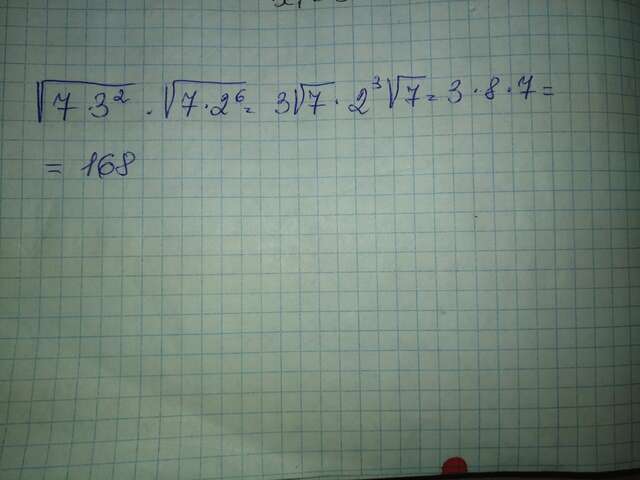 √7·3² · √7·2⁶ = 3√7 · 2³√7 = 3·8·7 =
= 168